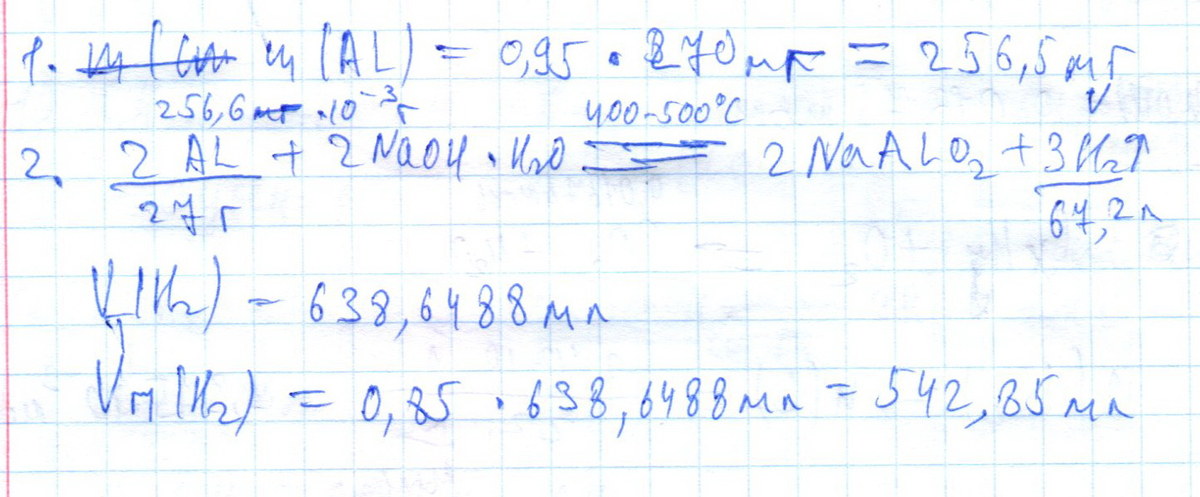 1. m (AL) = 0,95 · 270 мг = 256,5 мг
256,6 мг · 10⁻³ г 400-500°C V
2. 2 AL + 2 NaOH · H₂O = 2 NaALO₂ + 3 H₂↑
27 г 67,2 л
V(H₂) = 638,6488 мл
Vп(H₂) = 0,85 · 638,6488 мл = 542,85 мл